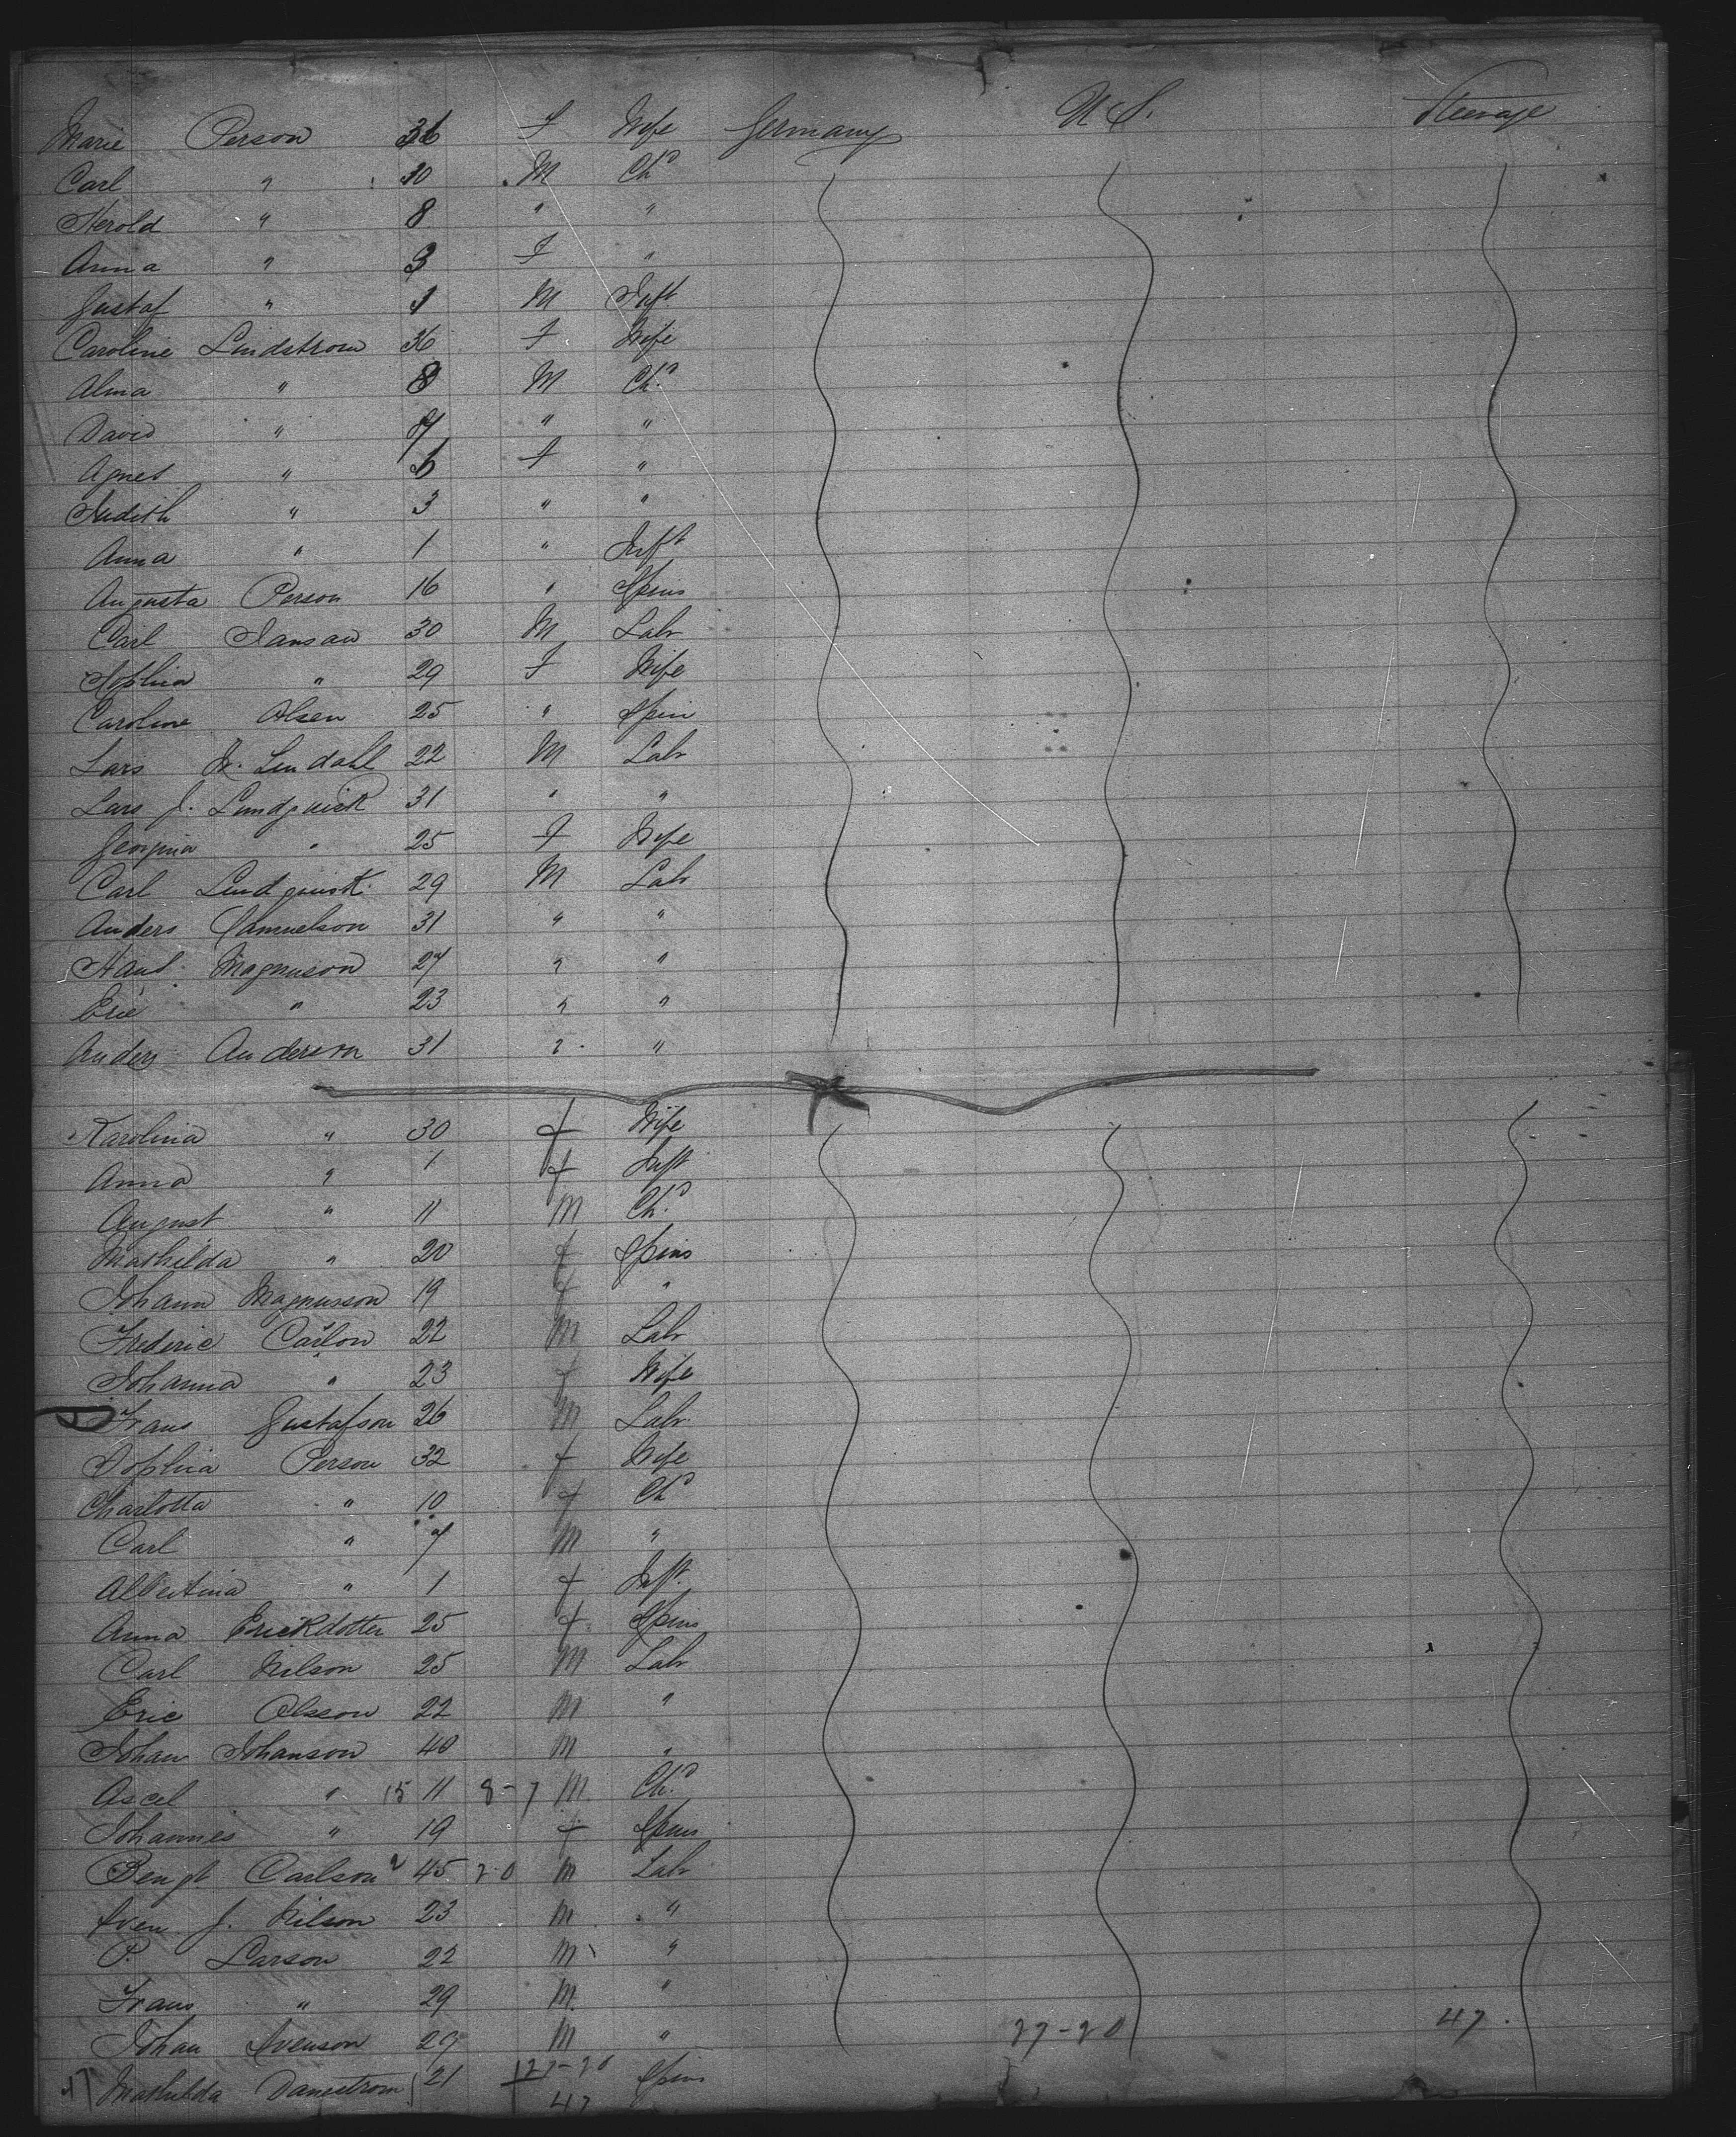 Marie Person 36 F Wife Germany U S. Steerage
Carl " 10 M Chd
Herold " 8 " "
Anna " 3 F "
Gustaf " 1 M Inft
Caroline Lindstrom 36 F Wife
Alma " 8 M Chd
David " 7 " "
Agnes " 6 F "
Judith " 3 " "
Anna " 1 " Inft
Augusta Person 16 " Spins
Carl Jansan 30 M Labr
Sophia " 29 F Wife
Caroline Olsen 25 " Spin
Lars N. Lendahl 22 M Labr
Lars J. Lundquist 31 " "
Georgina " 25 F Wife
Carl Lindquist 29 M Labr
Anders Samuelson 31 " "
Magnuson 27 " "
Eric " 23 " "
Anders Anderson 31 " "
Karolina " 30 f Wife
Anna " 1 f Inft
August " 11 M Chd
Mathilda " 20 f Spins
Johann Magnusson 19 f "
Frederic Carlson 22 M Labr
Johanna " 23 f Wife
Frans Gustafson 26 M Labr
Sophia Person 32 f Wife
Charlotta " 10 f Chd
Carl " 7 M "
Albertina " 1 f Inft
Anna Erickdotter 25 f Spins
Carl Nilson 25 M Labr
Eric Olsson 22 M "
Johan Johanson 40 M "
Ascel " 15 11 8-7 M Chd
Johannes " 19 f Spins
Bengt Carlson 45 20 M Labr
Sven J. Nilson 23 M "
P. Larson 22 M "
Frans " 29 M "
Johan Svenson 29 M " 27-20 47.
47 Mathilda Danestrom 21 27-20 Spins
47